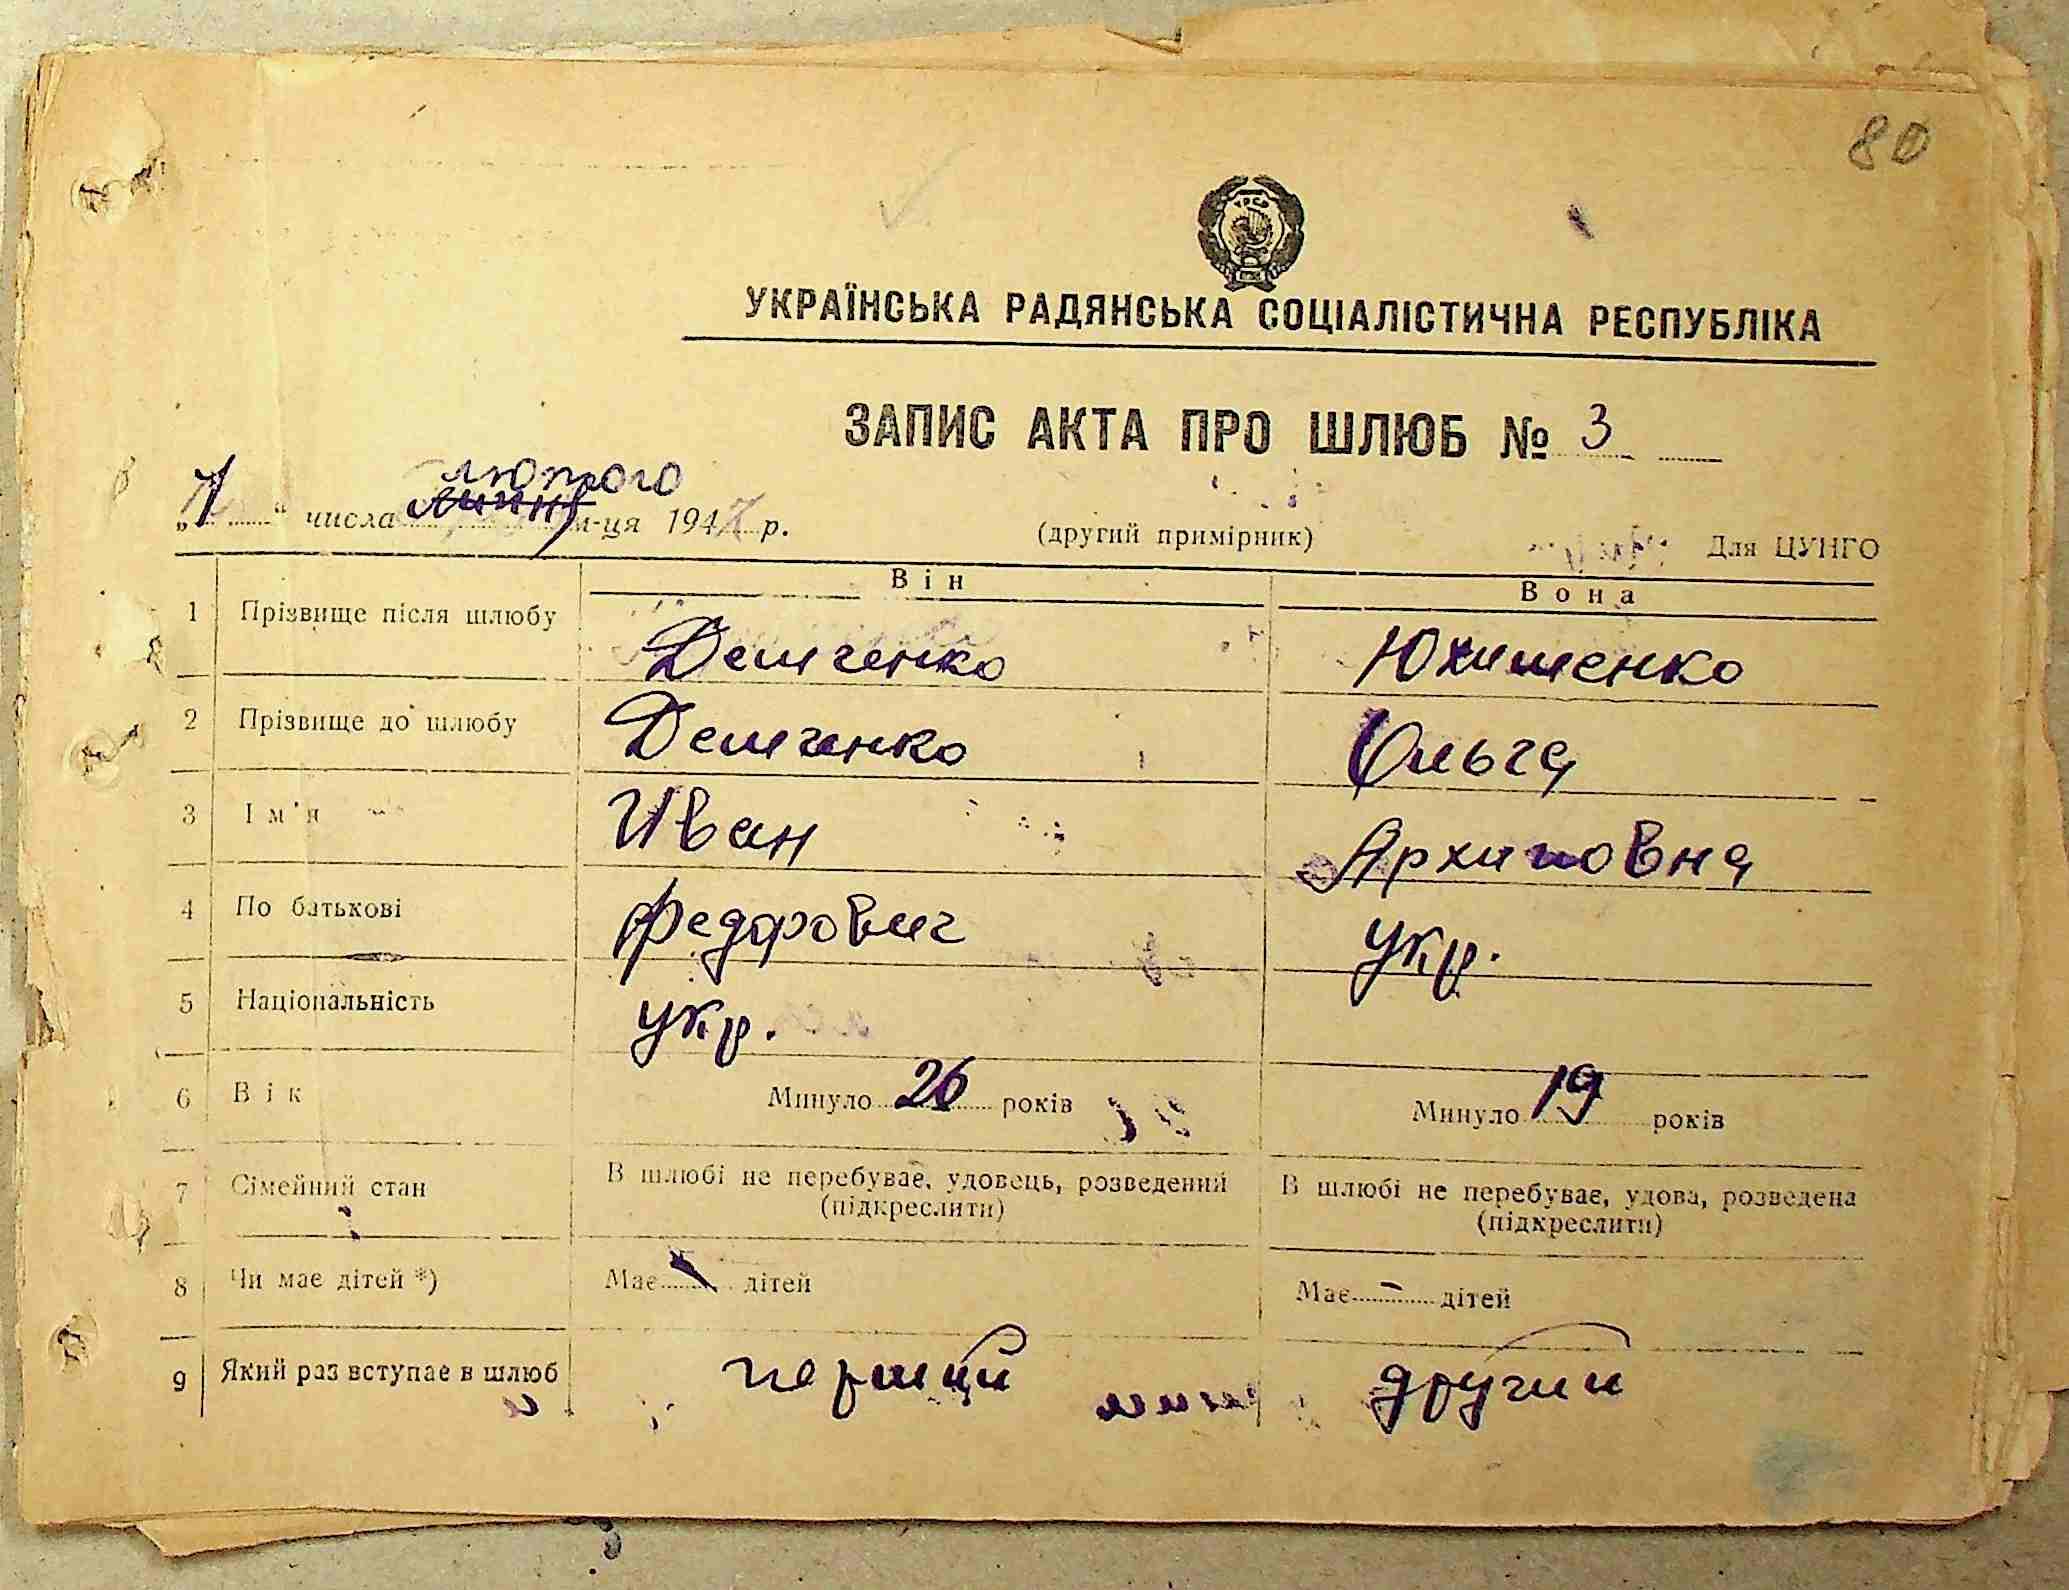 80
УКРАЇНСЬКА РАДЯНСЬКА СОЦІАЛІСТИЧНА РЕСПУБЛІКА
ЗАПИС АКТА ПРО ШЛЮБ № 3
лютого
„ “ числа м-ця 1947 р. (другий примірник) Для ЦУНГО
Він Вона
1 Прізвище після шлюбу Демченко Юхименко
2 Прізвище до шлюбу Демченко Ольга
3 Ім'я Иван Архиповна
4 По батькові Федорович укр.
5 Національність укр.
6 Вік Минуло 26 років Минуло 19 років
7 Сімейний стан В шлюбі не перебуває, удовець, розведений В шлюбі не перебуває, удова, розведена
(підкреслити) (підкреслити)
8 Чи має дітей *) Має дітей Має – дітей
9 Який раз вступає в шлюб перший другий